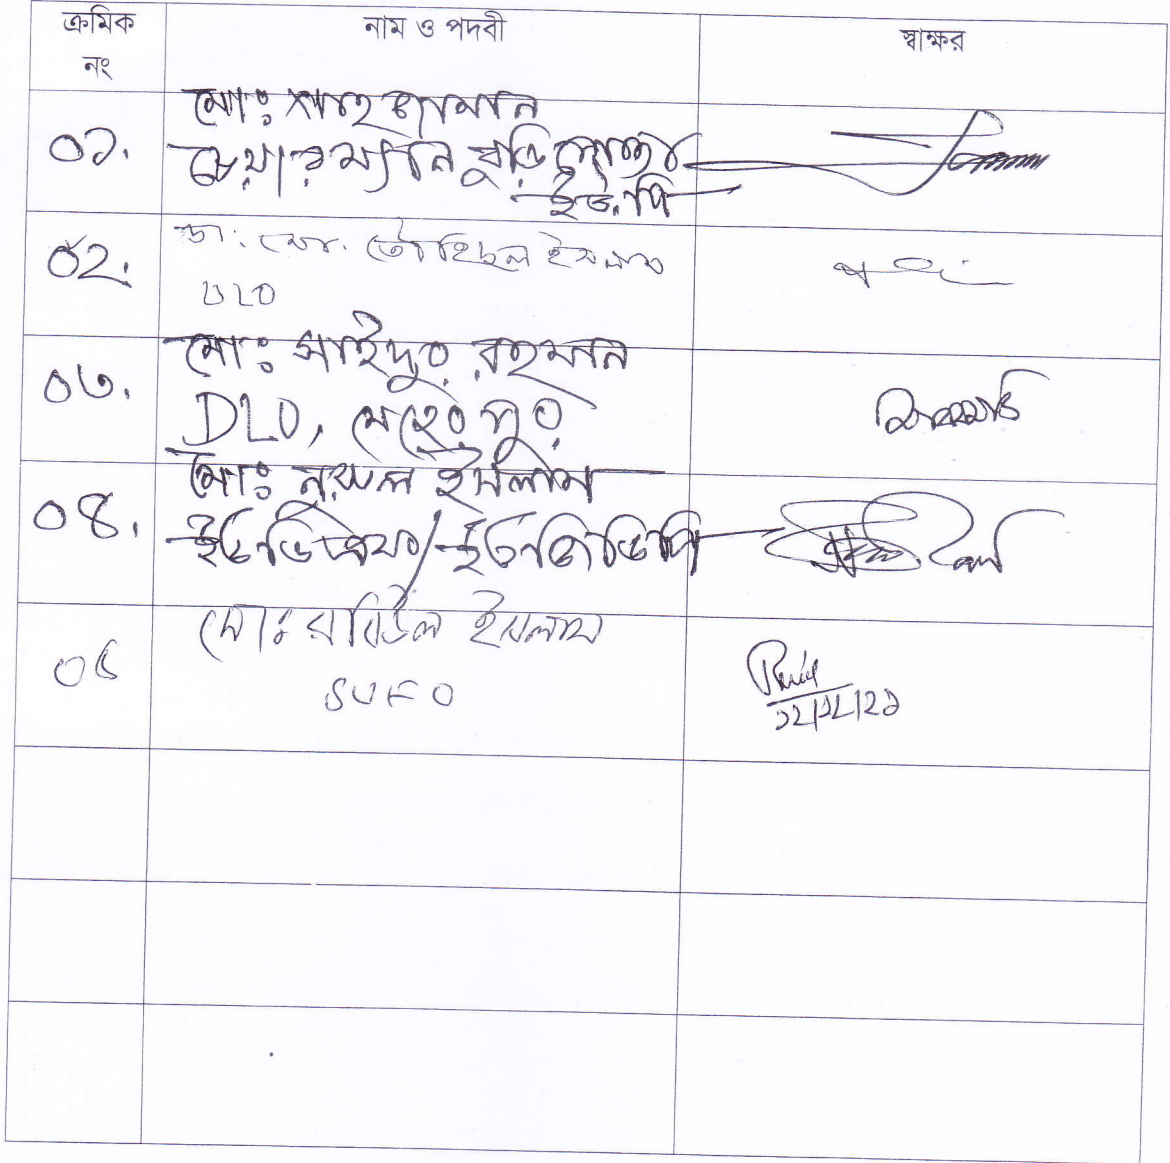 ক্রমিক নং নাম ও পদবী স্বাক্ষর
মোঃ শাহ জামান
০১. চেয়ারম্যান বুড়িপোতা
ইউ.পি
০২. ডা: মো. তৌহিদুল ইসলাম
ULO
০৩. মোঃ সাইদুর রহমান
DLO, মেহেরপুর
০৪. মোঃ নুরুল ইসলাম
ইউজিডিপি
০৫ মোঃ রবিউল ইসলাম
SUFO
১২/১২/২১